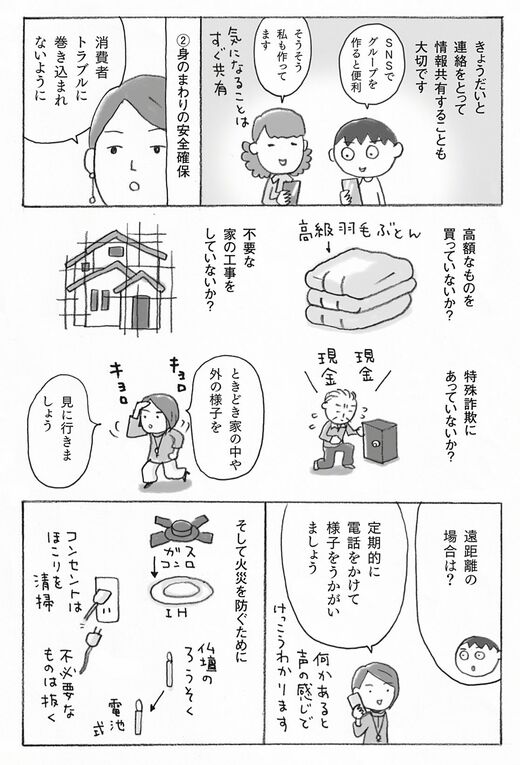 きょうだいと
連絡をとって
情報共有することも
大切です
ＳＮＳで
グループを
作ると便利
そうそう
私も作って
ます
気になることは
すぐ共有
②身のまわりの安全確保
消費者
トラブルに
巻き込まれ
ないように
高額なものを
買っていないか？
高級羽毛ぶとん
不要な
家の工事を
していないか？
特殊詐欺に
あっていないか？
現金
現金
ときどき家の中や
外の様子を
キョロ
キョロ
見に行きま
しょう
遠距離の
場合は？
定期的に
電話をかけて
様子をうかがい
ましょう
何かあると
声の感じで
けっこうわかります
そして火災を防ぐために
ガス
コンロ
ＩＨ
仏壇の
ろうそく
電池
式
コンセントは
ほこりを
清掃
不必要な
ものは抜く